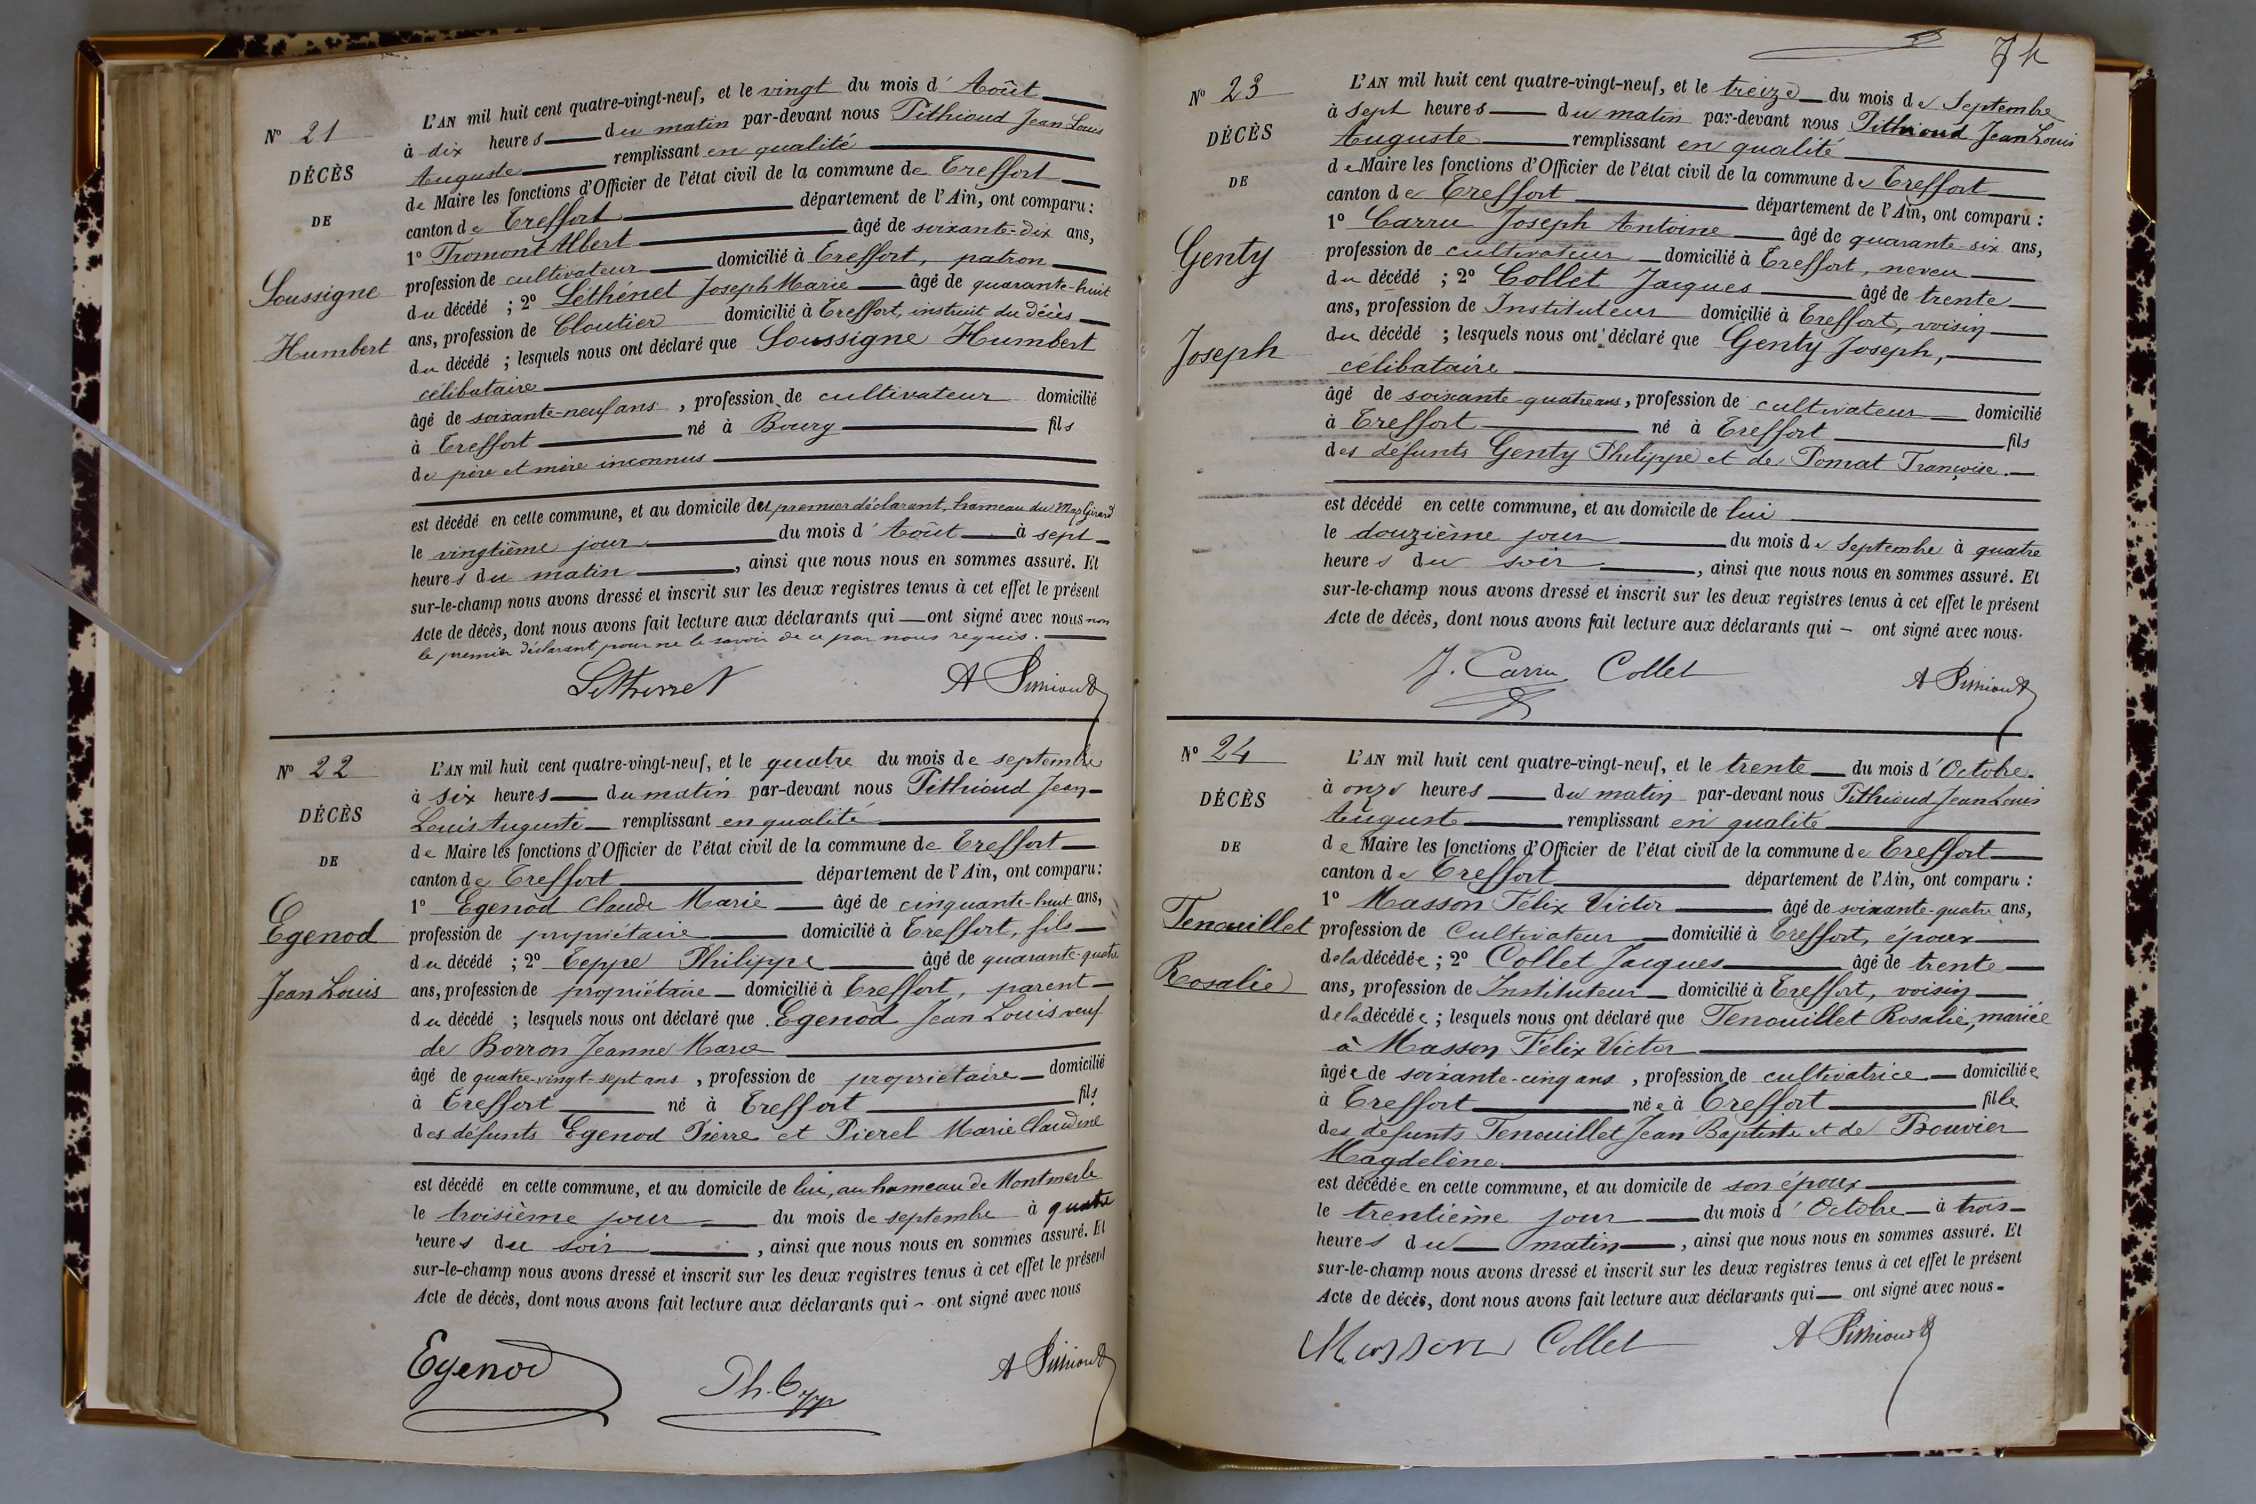 Nº 21
DÉCÈS
DE
Soussigne
Humbert
L'AN mil huit cent quatre-vingt-neuf, et le vingt du mois d'Août
à dix heures du matin par-devant nous Pithioud Jean Louis
Auguste remplissant en qualité
de Maire les fonctions d'Officier de l'état civil de la commune de Treffort
canton de Treffort département de l'Ain, ont comparu :
1º Tromont Albert âgé de soixante-dix ans,
profession de cultivateur domicilié à Treffort, patron
du décédé ; 2º Léthénet Joseph Marie âgé de quarante-huit
ans, profession de Cloutier domicilié à Treffort, instruit du décès
du décédé ; lesquels nous ont déclaré que Soussigne Humbert
célibataire
âgé de soixante-neuf ans, profession de cultivateur domicilié
à Treffort né à Bourg fils
de père et mère inconnus
est décédé en cette commune, et au domicile du premier déclarant, hameau du Mas Girard
le vingtième jour du mois d'Août à sept
heures du matin, ainsi que nous nous en sommes assuré. Et
sur-le-champ nous avons dressé et inscrit sur les deux registres tenus à cet effet le présent
Acte de décès, dont nous avons fait lecture aux déclarants qui ont signé avec nous non
le premier déclarant pour ne le savoir de ce par nous requis.
Léthenet A Pithioud
Nº 22
DÉCÈS
DE
Egenod
Jean Louis
L'AN mil huit cent quatre-vingt-neuf, et le quatre du mois de septembre
à six heures du matin par-devant nous Pithioud Jean
Louis Auguste remplissant en qualité
de Maire les fonctions d'Officier de l'état civil de la commune de Treffort
canton de Treffort département de l'Ain, ont comparu :
1º Egenod Claude Marie âgé de cinquante-huit ans,
profession de propriétaire domicilié à Treffort, fils
du décédé ; 2º Teppe Philippe âgé de quarante-quatre
ans, profession de propriétaire domicilié à Treffort, parent
du décédé ; lesquels nous ont déclaré que Egenod Jean Louis veuf
de Borron Jeanne Marie
âgé de quatre-vingt-sept ans, profession de propriétaire domicilié
à Treffort né à Treffort fils
des défunts Egenod Pierre et Pierel Marie Claudine
est décédé en cette commune, et au domicile de lui, au hameau de Montmerle
le troisième jour du mois de septembre à quatre
heures du soir, ainsi que nous nous en sommes assuré. Et
sur-le-champ nous avons dressé et inscrit sur les deux registres tenus à cet effet le présent
Acte de décès, dont nous avons fait lecture aux déclarants qui ont signé avec nous
Egenod Ph. Teppe A Pithioud
74
Nº 23
DÉCÈS
DE
Genty
Joseph
L'AN mil huit cent quatre-vingt-neuf, et le treize du mois de Septembre
à sept heures du matin par-devant nous Pithioud Jean Louis
Auguste remplissant en qualité
de Maire les fonctions d'Officier de l'état civil de la commune de Treffort
canton de Treffort département de l'Ain, ont comparu :
1º Carru Joseph Antoine âgé de quarante-six ans,
profession de cultivateur domicilié à Treffort, neveu
du décédé ; 2º Collet Jacques âgé de trente
ans, profession de Instituteur domicilié à Treffort, voisin
du décédé ; lesquels nous ont déclaré que Genty Joseph,
célibataire
âgé de soixante-quatre ans, profession de cultivateur domicilié
à Treffort né à Treffort fils
des défunts Genty Philippe et de Pomat Françoise.
est décédé en cette commune, et au domicile de lui
le douzième jour du mois de Septembre à quatre
heures du soir, ainsi que nous nous en sommes assuré. Et
sur-le-champ nous avons dressé et inscrit sur les deux registres tenus à cet effet le présent
Acte de décès, dont nous avons fait lecture aux déclarants qui ont signé avec nous.
J. Carru Collet A Pithioud
Nº 24
DÉCÈS
DE
Tenouillet
Rosalie
L'AN mil huit cent quatre-vingt-neuf, et le trente du mois d'Octobre.
à onze heures du matin par-devant nous Pithioud Jean Louis
Auguste remplissant en qualité
de Maire les fonctions d'Officier de l'état civil de la commune de Treffort
canton de Treffort département de l'Ain, ont comparu :
1º Masson Félix Victor âgé de soixante-quatre ans,
profession de Cultivateur domicilié à Treffort, époux
de la décédée ; 2º Collet Jacques âgé de trente
ans, profession de Instituteur domicilié à Treffort, voisin
de la décédée ; lesquels nous ont déclaré que Tenouillet Rosalie, mariée
à Masson Félix Victor
âgée de soixante-cinq ans, profession de cultivatrice domiciliée
à Treffort née à Treffort fille
des défunts Tenouillet Jean Baptiste et de Bouvier
Magdelène
est décédée en cette commune, et au domicile de son époux
le trentième jour du mois d'Octobre à trois
heures du matin, ainsi que nous nous en sommes assuré. Et
sur-le-champ nous avons dressé et inscrit sur les deux registres tenus à cet effet le présent
Acte de décès, dont nous avons fait lecture aux déclarants qui ont signé avec nous.
Masson Collet A Pithioud